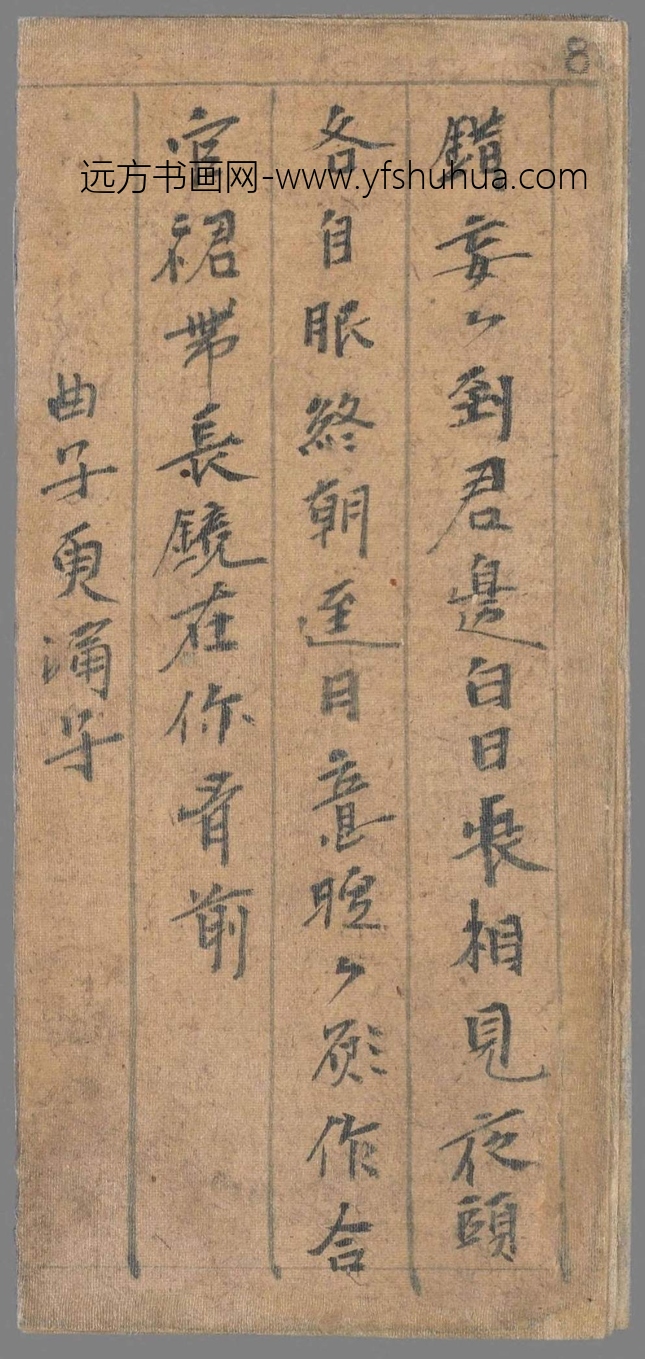 8
远方书画网-www.yfshuhua.com
錯妄々到君邊白日長相見夜頭
各自眠終朝逕日意朣々願作合
官裙帶長鏡在你看前
曲子更漏子